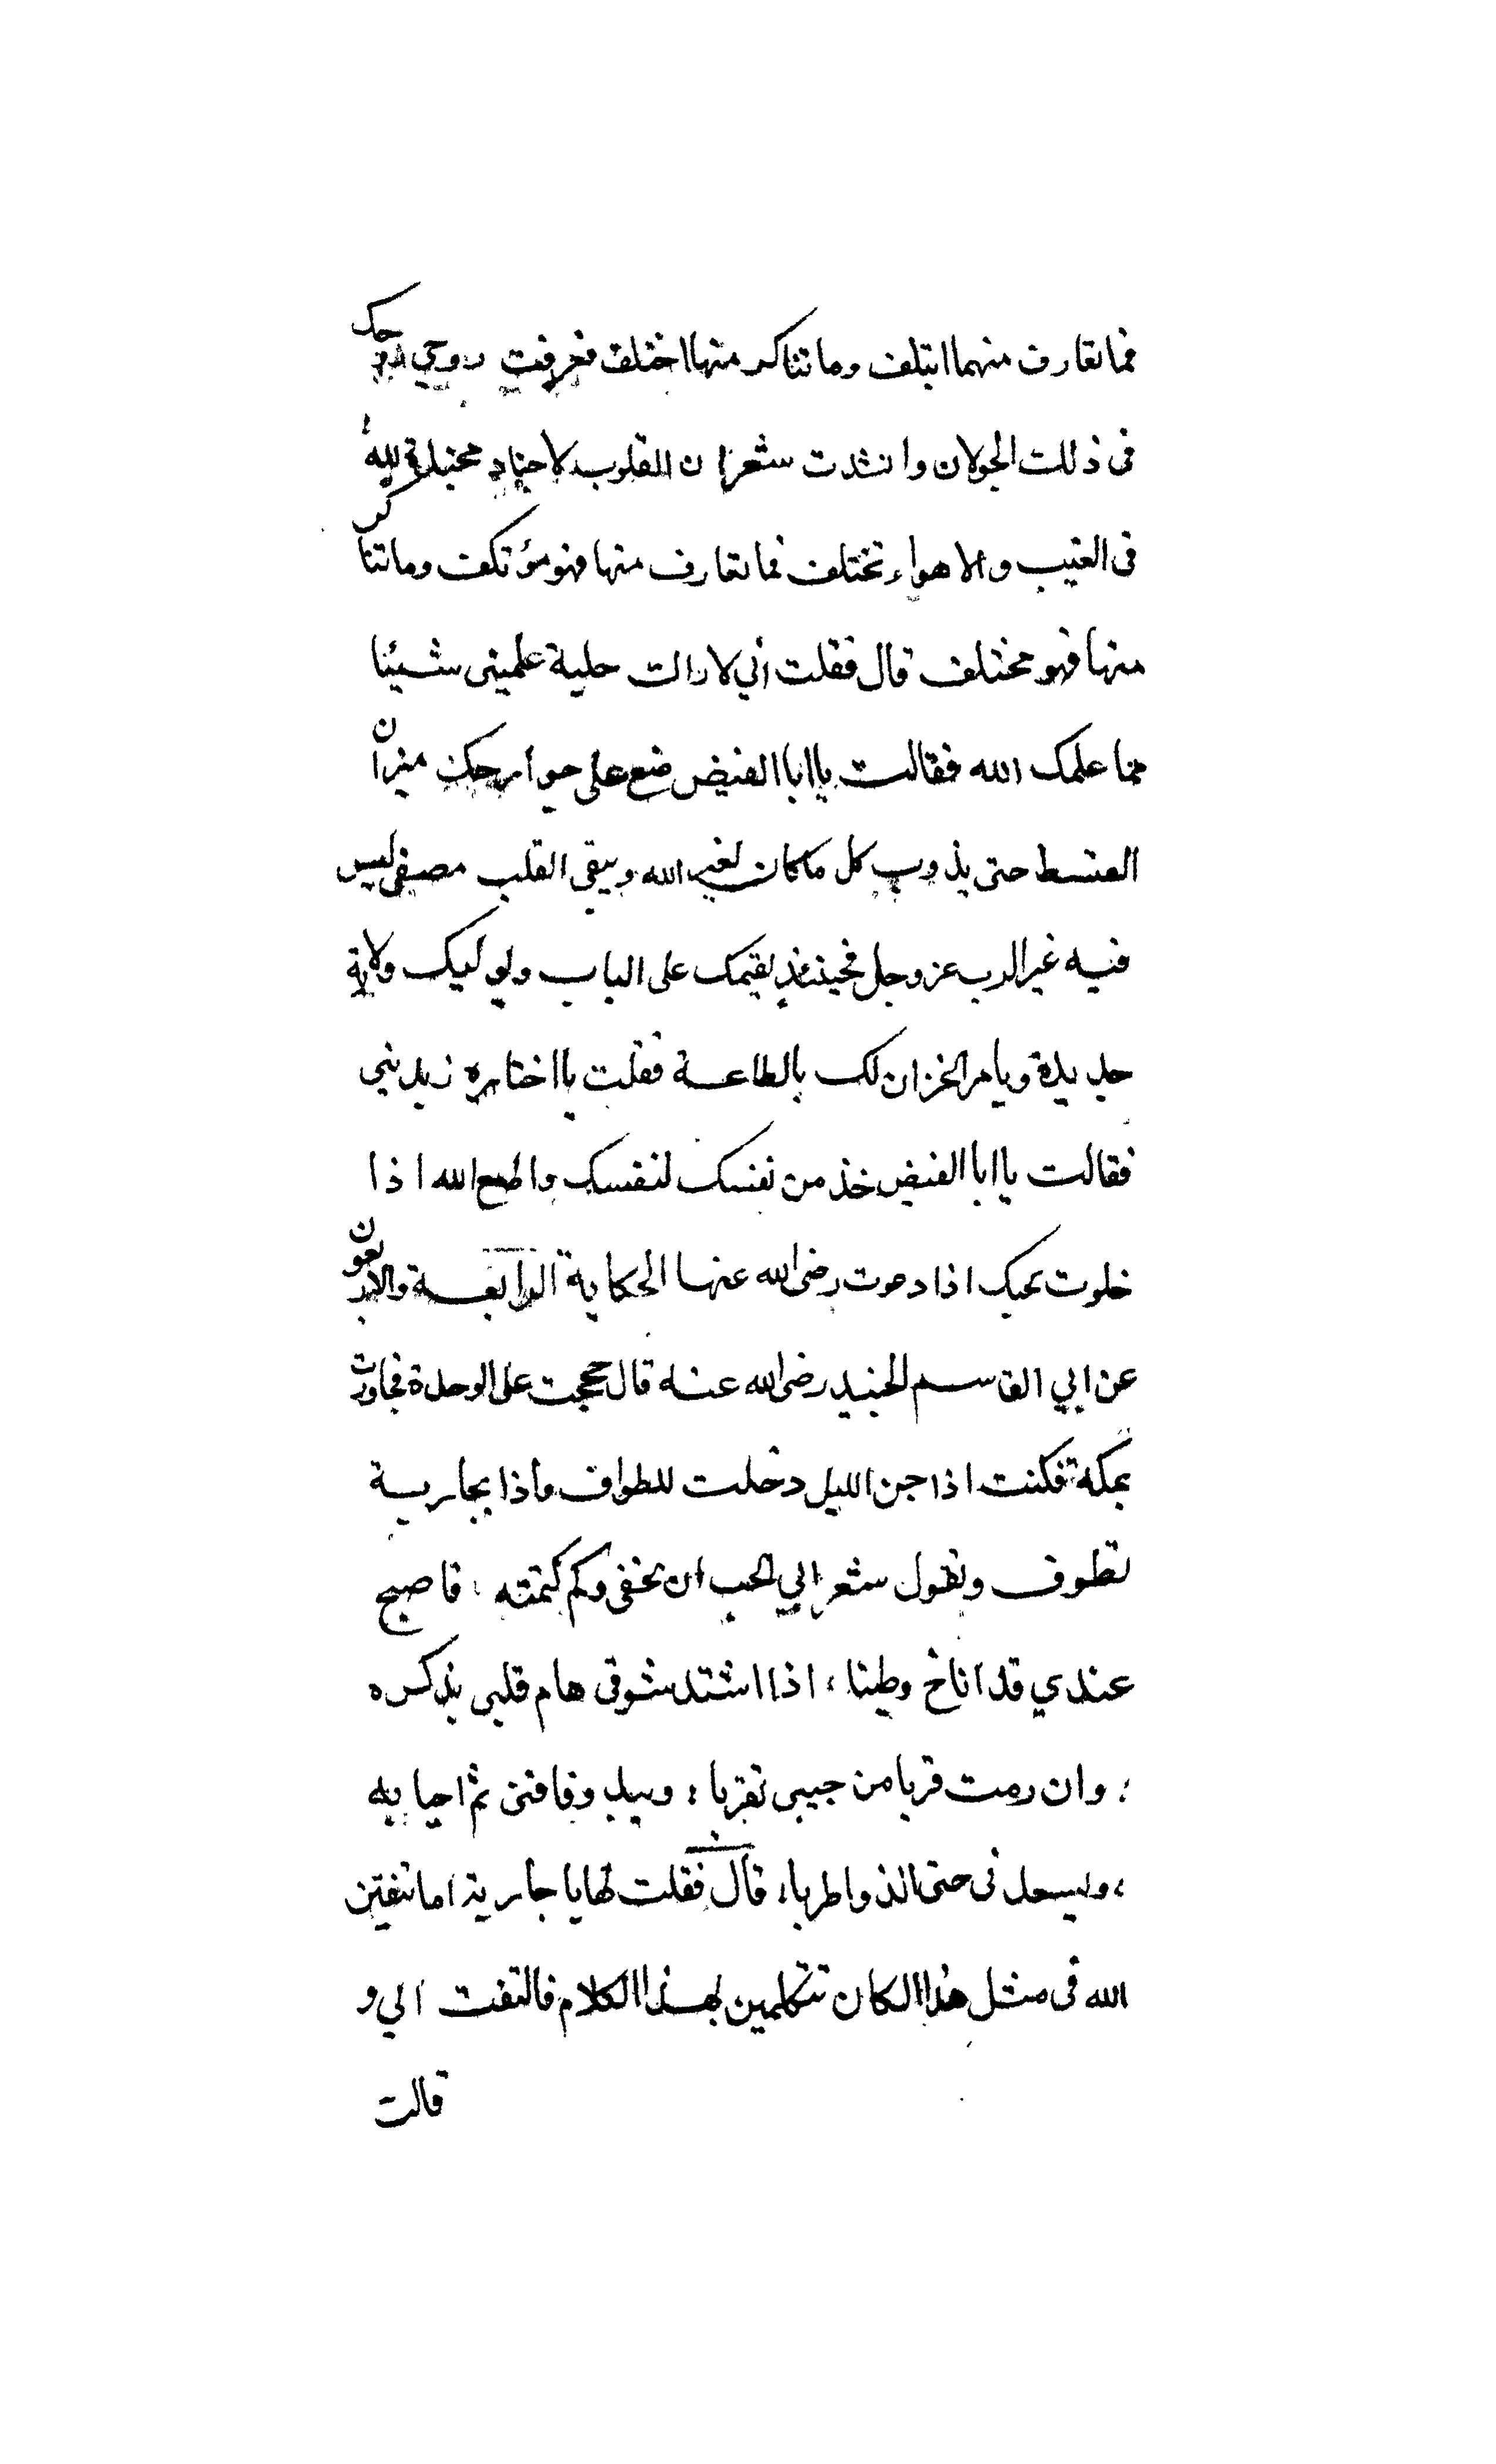 فما تعارف منهما ائتلف وما تناكر منها اختلف فعرفت روحي روحك
فى ذلك الجولان وانشدت شعر ان القلوب لاجناد مجندة لله
فى الغيب والاهواء تختلف فما تعارف منها فهو مؤتلف وما تناكر
منها فهو مختلف قال فقلت اني لاراك حلية علميني شيئا
مما علمك الله فقالت يا ابا الفيض ضع على جوارحك ميزان
القسط حتى يذوب كل ما كان لغير الله ويبقى القلب مصفى ليس
فيه غير الرب عز وجل فحينئذ يقيمك على الباب ويوليك ولاية
جديدة ويامر الخزان لك بالطاعة فقلت يا اختاه زيديني
فقالت يا ابا الفيض خذ من نفسك لنفسك واطع الله اذا
خلوت يحبك اذا دعوت رضى الله عنها الحكاية الرابعة والاربعون
عن ابي القاسم الجنيد رضى الله عنه قال حججت على الوحدة فجاورت
بمكة فكنت اذا جن الليل دخلت للطواف واذا بجارية
تطوف وتقول شعر ابي الحب ان يخفى وكم كتمته ، فاصبح
عندي قد اناخ وطنبا ، اذا اشتد شوقى هام قلبى بذكره
؛ وان رمت قربا من حبيبى تقربا ؛ ويبدو فافنى ثم احيا به
، ويسعدنى حتى الذ واطربا ، قال فقلت لها يا جارية اما تتقين
الله فى مثل هذا المكان تتكلمين بهذا الكلام فالتفت الي و
قالت